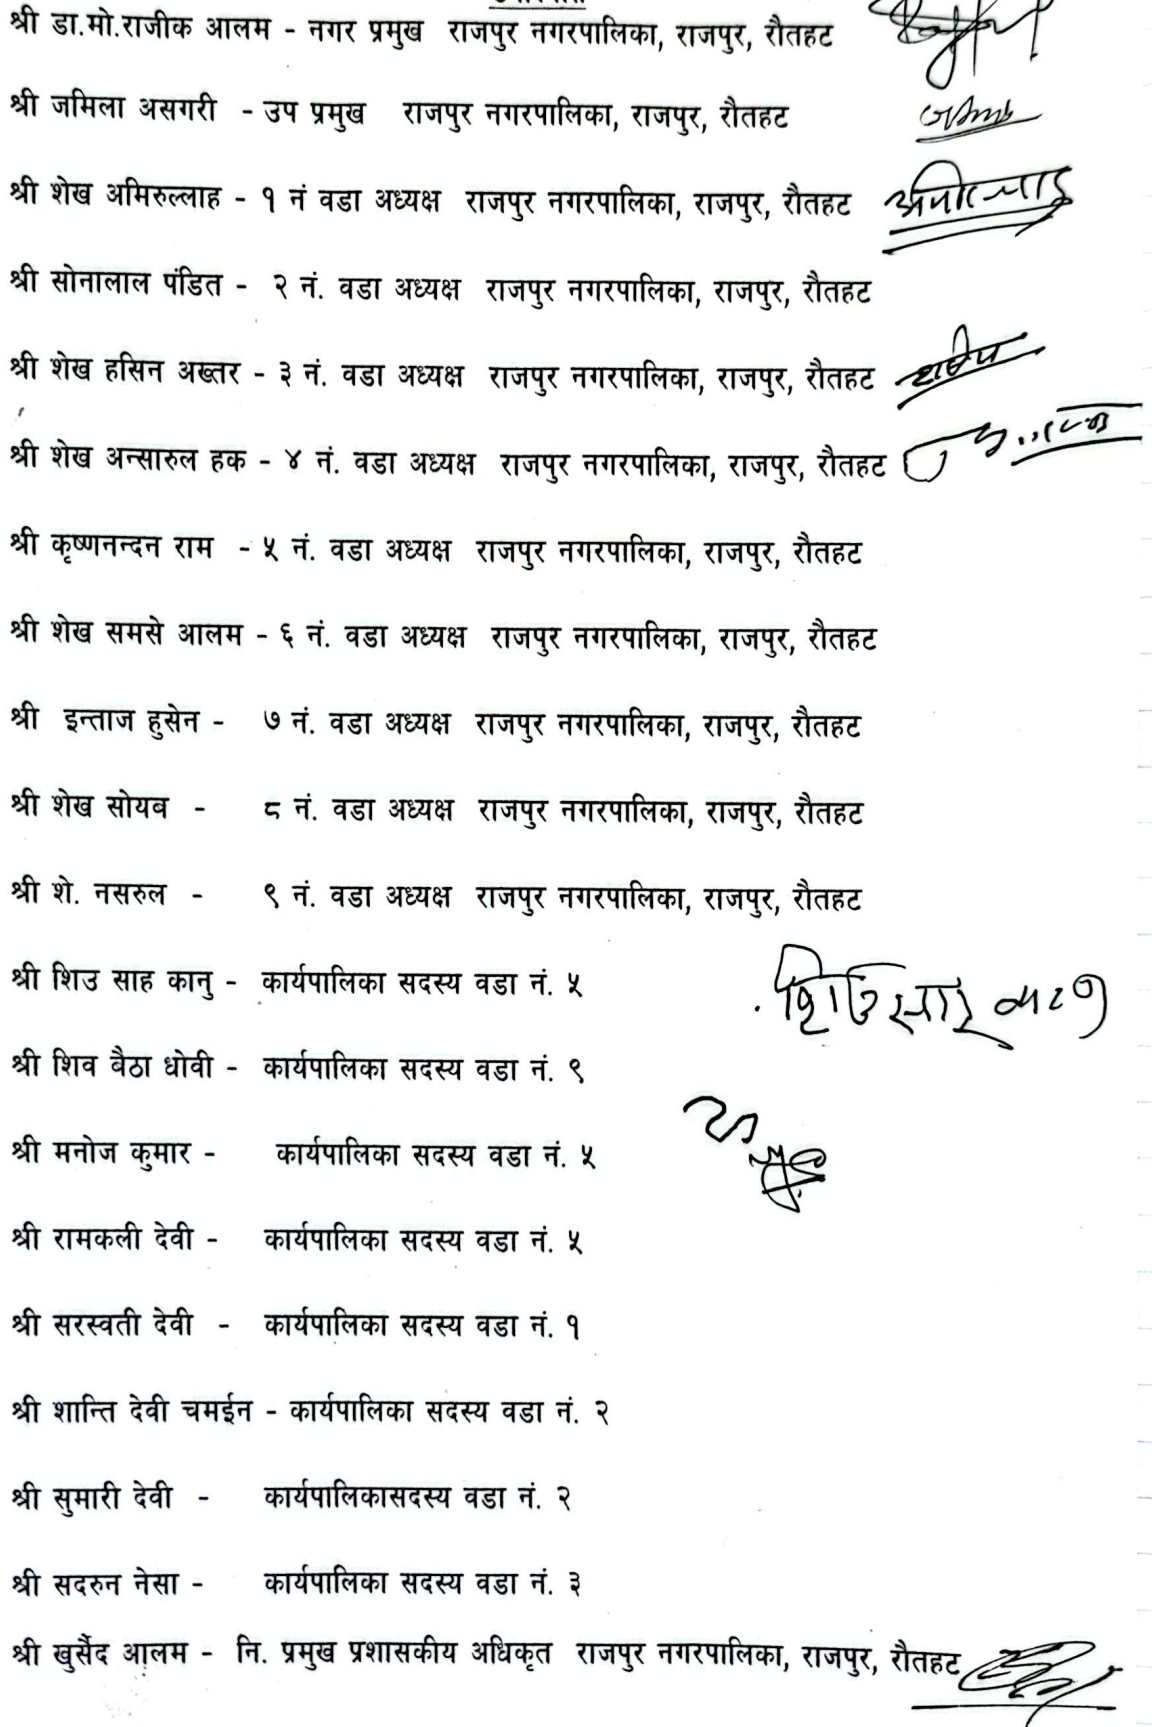 श्री डा.मो.राजीक आलम - नगर प्रमुख राजपुर नगरपालिका, राजपुर, रौतहट
श्री जमिला असगरी - उप प्रमुख राजपुर नगरपालिका, राजपुर, रौतहट
श्री शेख अमिरुल्लाह - १ नं वडा अध्यक्ष राजपुर नगरपालिका, राजपुर, रौतहट
श्री सोनालाल पंडित - २ नं. वडा अध्यक्ष राजपुर नगरपालिका, राजपुर, रौतहट
श्री शेख हसिन अख्तर - ३ नं. वडा अध्यक्ष राजपुर नगरपालिका, राजपुर, रौतहट
श्री शेख अन्सारुल हक - ४ नं. वडा अध्यक्ष राजपुर नगरपालिका, राजपुर, रौतहट
श्री कृष्णनन्दन राम - ५ नं. वडा अध्यक्ष राजपुर नगरपालिका, राजपुर, रौतहट
श्री शेख समसे आलम - ६ नं. वडा अध्यक्ष राजपुर नगरपालिका, राजपुर, रौतहट
श्री इन्ताज हुसेन - ७ नं. वडा अध्यक्ष राजपुर नगरपालिका, राजपुर, रौतहट
श्री शेख सोयब - ८ नं. वडा अध्यक्ष राजपुर नगरपालिका, राजपुर, रौतहट
श्री शे. नसरुल - ९ नं. वडा अध्यक्ष राजपुर नगरपालिका, राजपुर, रौतहट
श्री शिउ साह कानु - कार्यपालिका सदस्य वडा नं. ५
श्री शिव बैठा धोवी - कार्यपालिका सदस्य वडा नं. ९
श्री मनोज कुमार - कार्यपालिका सदस्य वडा नं. ५
श्री रामकली देवी - कार्यपालिका सदस्य वडा नं. ५
श्री सरस्वती देवी - कार्यपालिका सदस्य वडा नं. १
श्री शान्ति देवी चमईन - कार्यपालिका सदस्य वडा नं. २
श्री सुमारी देवी - कार्यपालिकासदस्य वडा नं. २
श्री सदरुन नेसा - कार्यपालिका सदस्य वडा नं. ३
श्री खुर्सैद आलम - नि. प्रमुख प्रशासकीय अधिकृत राजपुर नगरपालिका, राजपुर, रौतहट